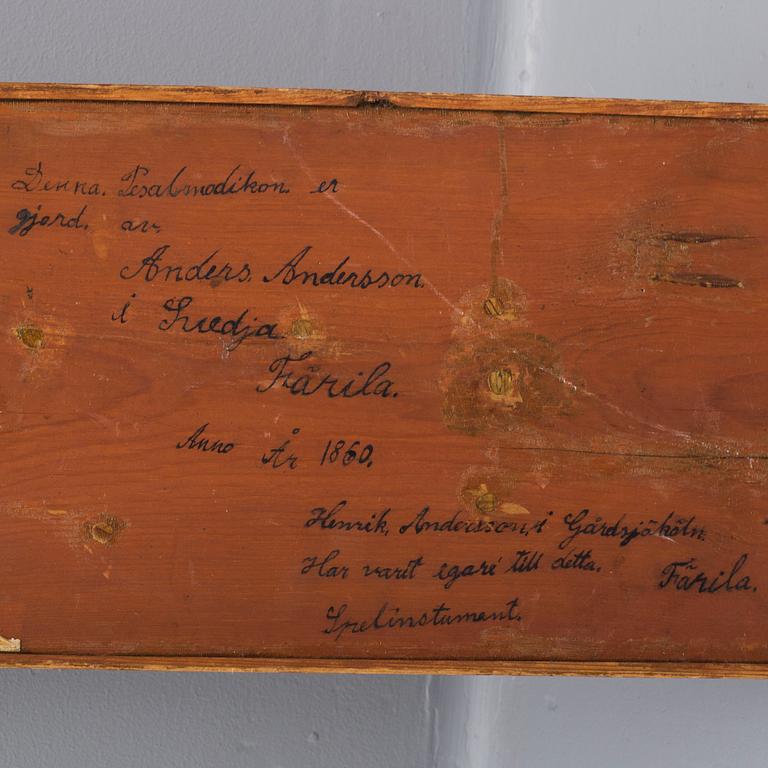 Denna. Psalmodikon. er
gjord. av.
Anders. Andersson.
i Svedja
Färila.
Anno År 1860.
Henrik. Andersson, i Gårdsjököln.
Har varit egaré till detta. Färila.
Spelinstument.